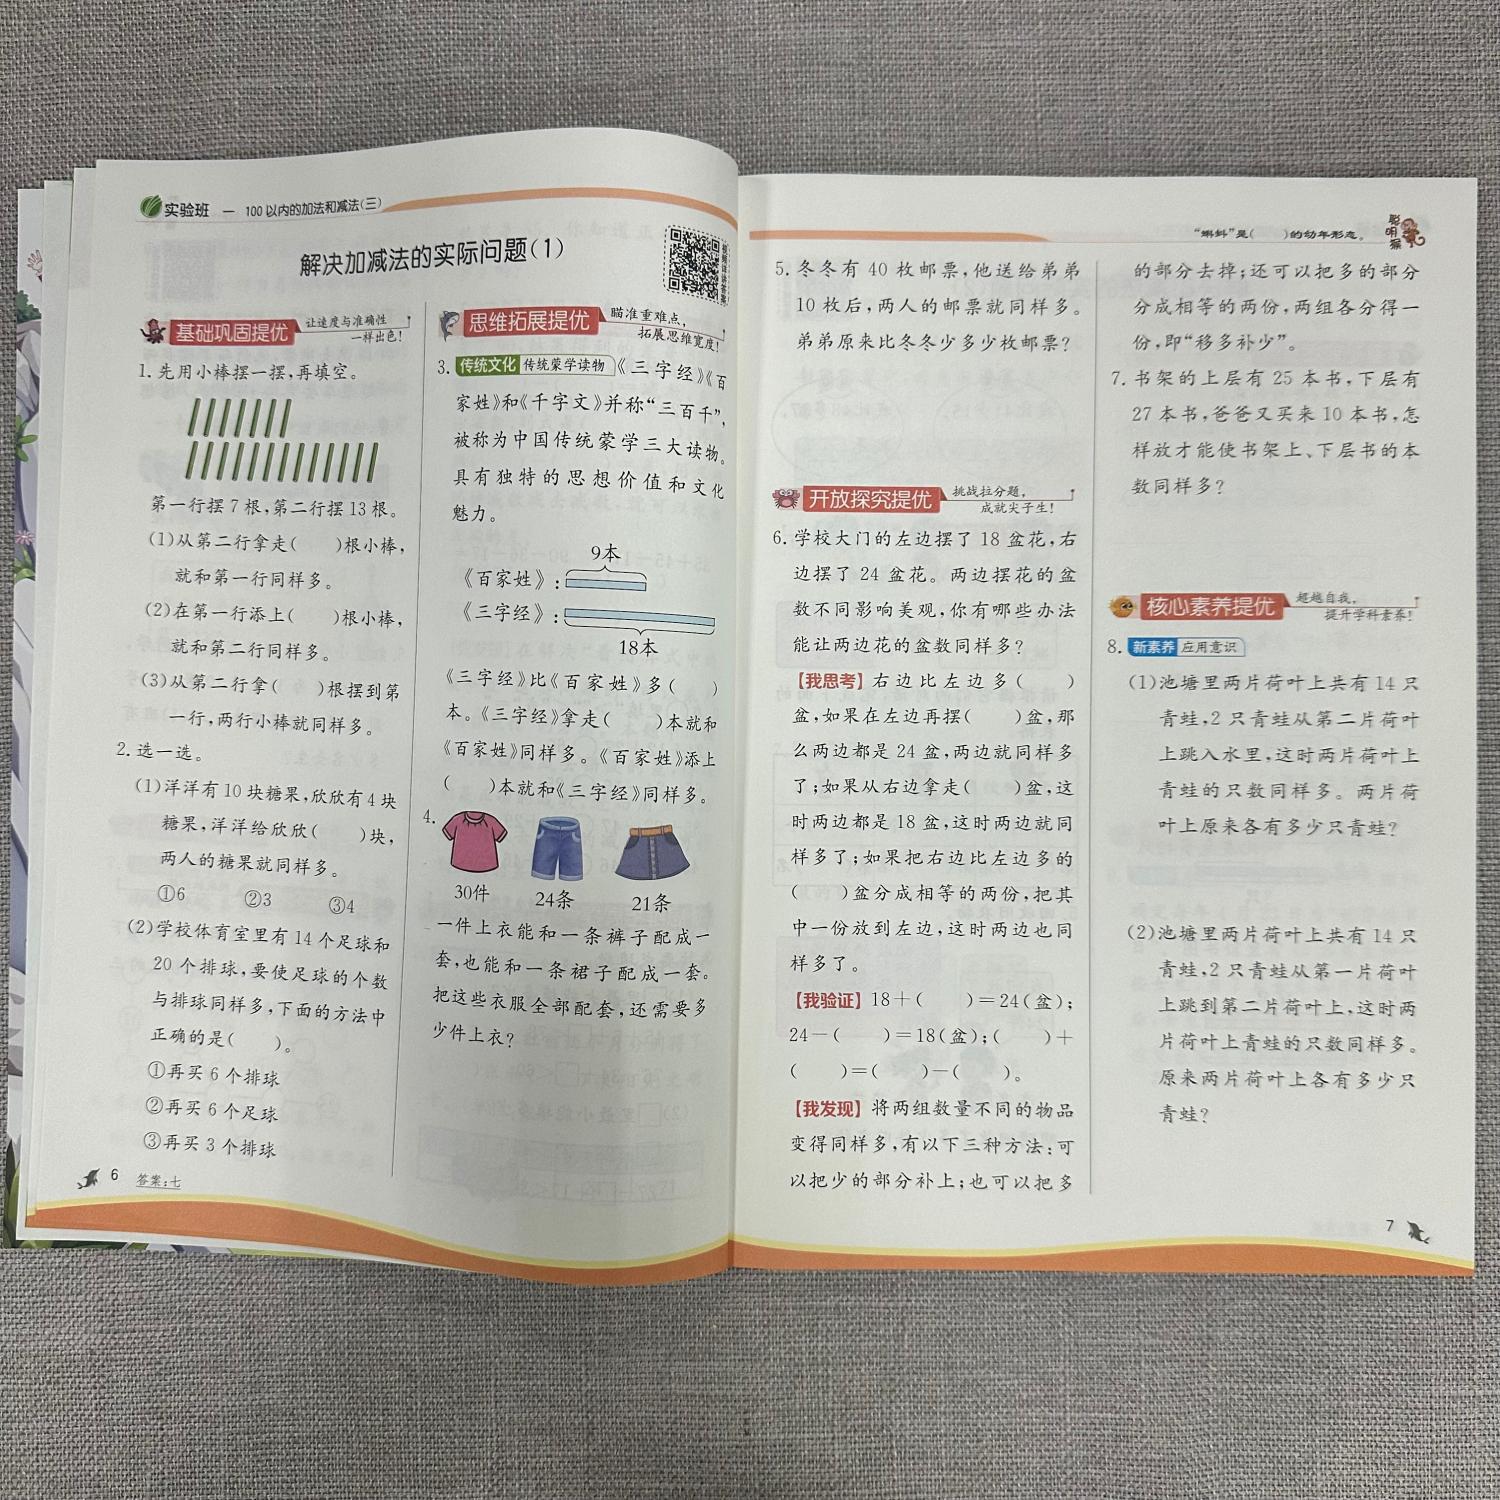 实验班 一 100以内的加法和减法(三)
解决加减法的实际问题(1)
基础巩固提优 让速度与准确性
一样出色!
1.先用小棒摆一摆,再填空。
第一行摆7根,第二行摆13根。
(1)从第二行拿走(  )根小棒,
就和第一行同样多。
(2)在第一行添上(  )根小棒,
就和第二行同样多。
(3)从第二行拿(  )根摆到第
一行,两行小棒就同样多。
2.选一选。
(1)洋洋有10块糖果,欣欣有4块
糖果,洋洋给欣欣(  )块,
两人的糖果就同样多。
①6 ②3 ③4
(2)学校体育室里有14个足球和
20个排球,要使足球的个数
与排球同样多,下面的方法中
正确的是(  )。
①再买6个排球
②再买6个足球
③再买3个排球
6 答案:七
思维拓展提优 瞄准重难点,
拓展思维宽度!
3. 传统文化 传统蒙学读物 《三字经》《百
家姓》和《千字文》并称“三百千”,
被称为中国传统蒙学三大读物。
具有独特的思想价值和文化
魅力。
9本
《百家姓》:
《三字经》:
18本
《三字经》比《百家姓》多(  )
本。《三字经》拿走(  )本就和
《百家姓》同样多。《百家姓》添上
(  )本就和《三字经》同样多。
4.
30件 24条 21条
一件上衣能和一条裤子配成一
套,也能和一条裙子配成一套。
把这些衣服全部配套,还需要多
少件上衣?
“蝌蚪”是(  )的幼年形态。 聪明猴
5.冬冬有40枚邮票,他送给弟弟
10枚后,两人的邮票就同样多。
弟弟原来比冬冬少多少枚邮票?
开放探究提优 挑战拉分题,
成就尖子生!
6.学校大门的左边摆了18盆花,右
边摆了24盆花。两边摆花的盆
数不同影响美观,你有哪些办法
能让两边花的盆数同样多?
【我思考】右边比左边多(  )
盆,如果在左边再摆(  )盆,那
么两边都是24盆,两边就同样多
了;如果从右边拿走(  )盆,这
时两边都是18盆,这时两边就同
样多了;如果把右边比左边多的
(  )盆分成相等的两份,把其
中一份放到左边,这时两边也同
样多了。
【我验证】18+(  )=24(盆);
24-(  )=18(盆);(  )+
(  )=(  )-(  )。
【我发现】将两组数量不同的物品
变得同样多,有以下三种方法:可
以把少的部分补上;也可以把多
的部分去掉;还可以把多的部分
分成相等的两份,两组各分得一
份,即“移多补少”。
7.书架的上层有25本书,下层有
27本书,爸爸又买来10本书,怎
样放才能使书架上、下层书的本
数同样多?
核心素养提优 超越自我,
提升学科素养!
8. 新素养 应用意识
(1)池塘里两片荷叶上共有14只
青蛙,2只青蛙从第二片荷叶
上跳入水里,这时两片荷叶上
青蛙的只数同样多。两片荷
叶上原来各有多少只青蛙?
(2)池塘里两片荷叶上共有14只
青蛙,2只青蛙从第一片荷叶
上跳到第二片荷叶上,这时两
片荷叶上青蛙的只数同样多。
原来两片荷叶上各有多少只
青蛙?
7